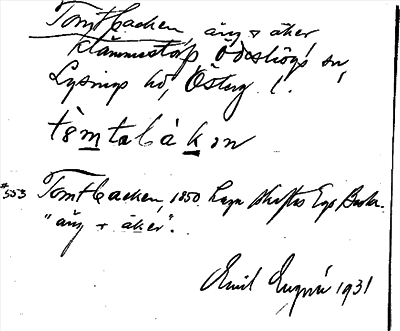 Tomtbacken, äng + åker
Stämmestorp, Ödeshögs sn,
Lysings hd, Österg. l.
tòmtabàkan
#353 Tomtbacken, 1850. Laga skiftes Egobeskr.
"äng + åker".
Emil 1931